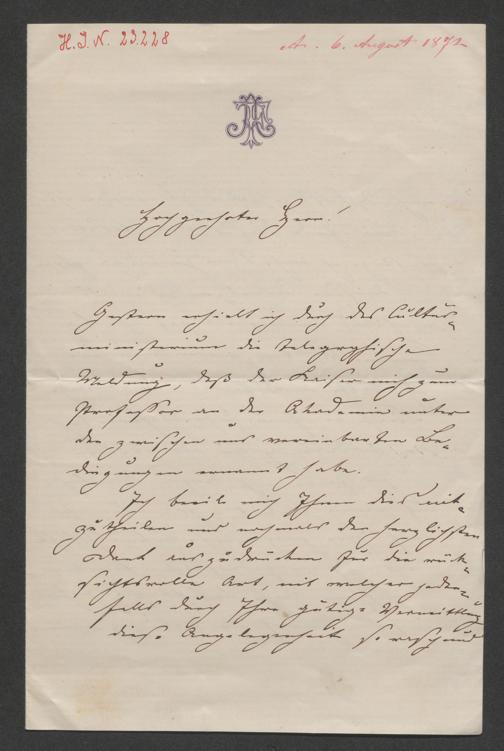 H. I. N. 23.228
A. 6. August 1872
Hochgeehrter Herr!
Gestern erhielt ich durch das Cultus-
ministerium die telegraphische
Meldung, daß der Kaiser mich zum
Professor an der Akademie unter
den zwischen uns vereinbarten Be-
dingungen ernannt habe.
Ich beeile mich Ihnen dies mit-
zutheilen und nochmals den herzlichsten
Dank auszudrücken für die rück-
sichtsvolle Art, mit welcher jeden-
falls durch Ihre gütige Vermittlung
diese Angelegenheit so rasch und